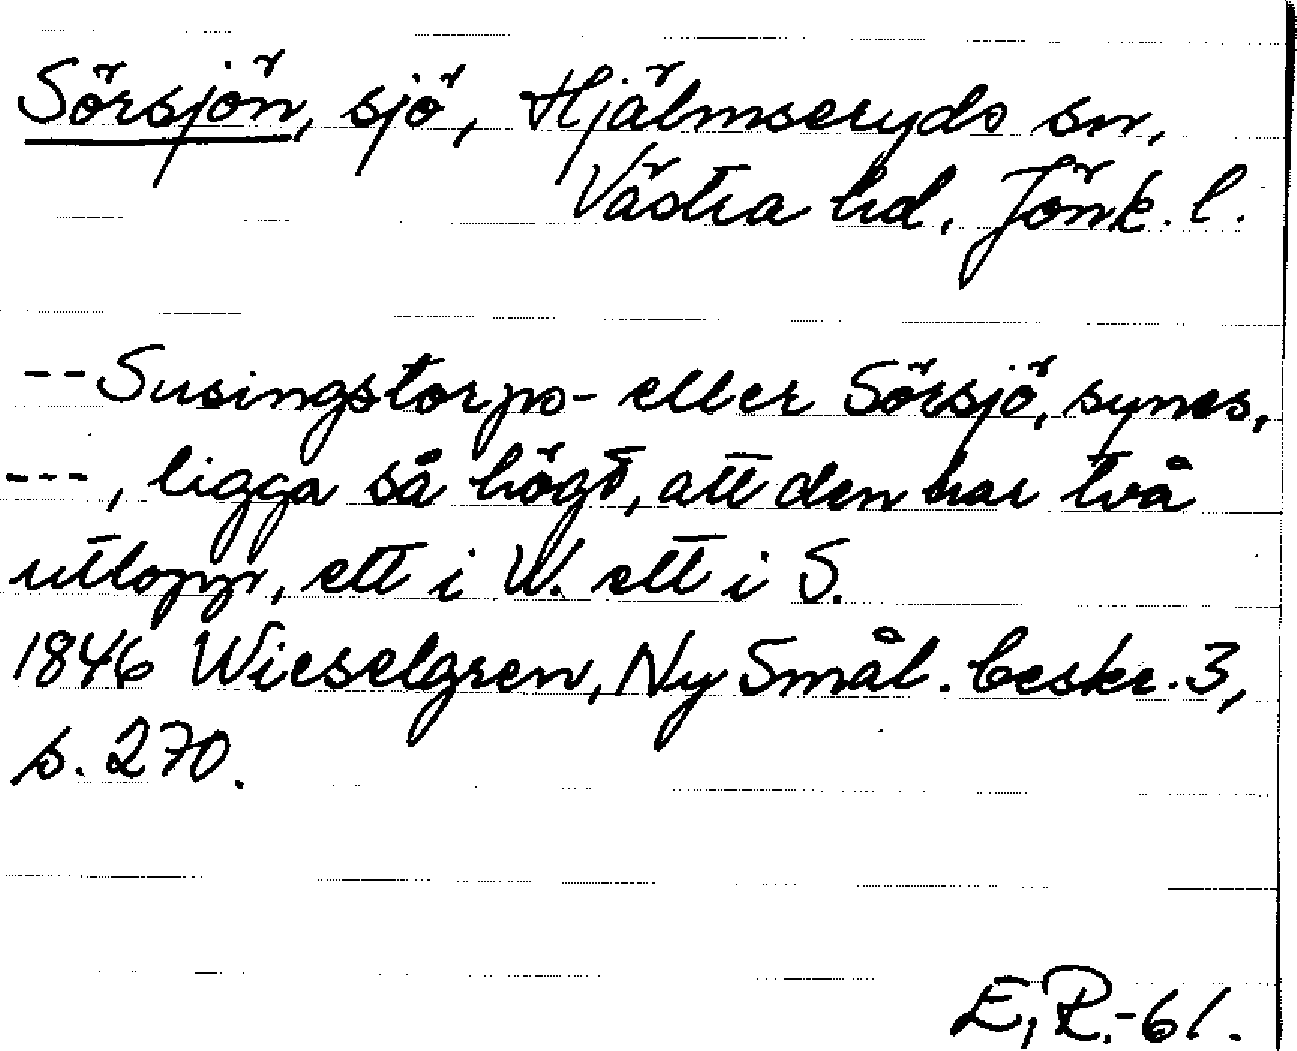 Sörsjön, sjö, Hjälmseryds sn,
Västra hd, Jönk. l.
-- Susingstorps- eller Sörsjö, synes,
---, ligga så högt, att den har två
utlopp, ett i W. ett i S.
1846 Wieselgren, Ny Smål. beskr. 3,
s. 270.
E, R.-61.